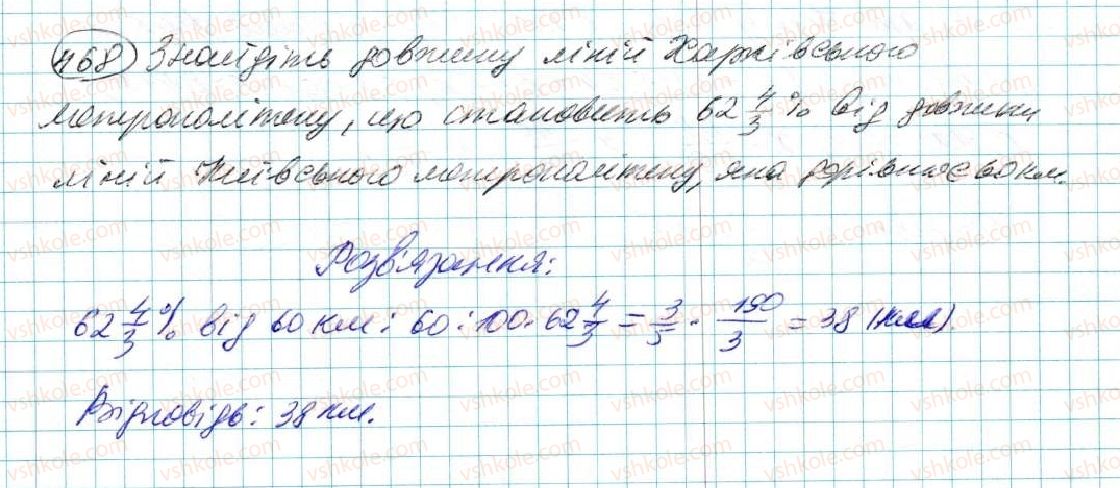 468 Знайдіть довжину ліній Харківського
метрополітену, що становить 62 4/3 % від довжини
ліній Київського метрополітену, яка дорівнює 60 км.
Розв'язання:
62 4/3 % від 60 км: 60 : 100 · 62 4/3 = 3/5 · 190/3 = 38 (км).
Відповідь: 38 км.